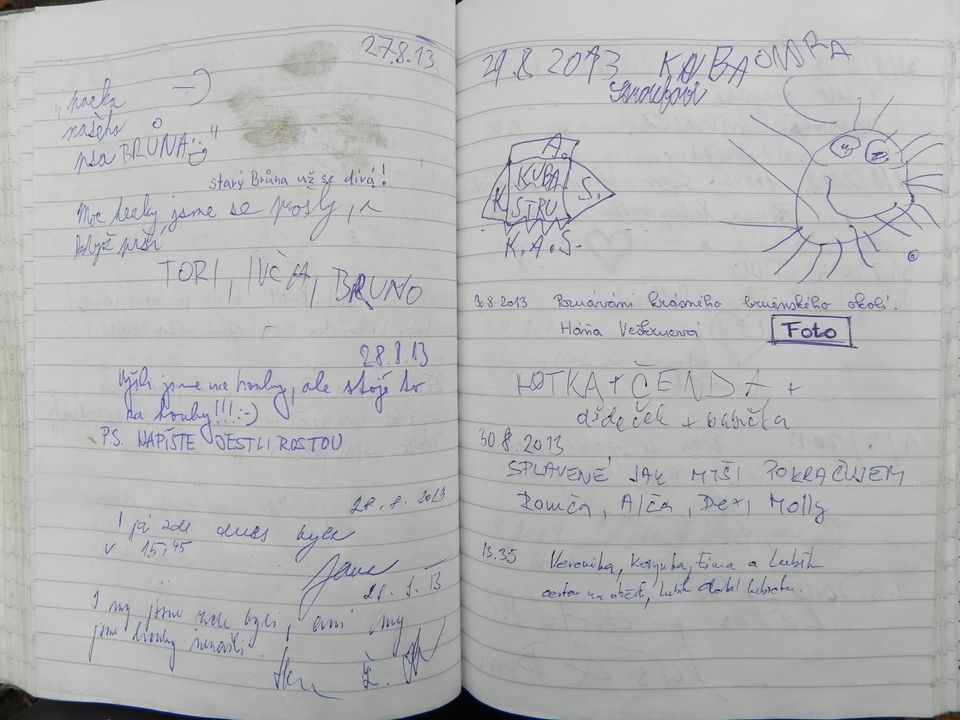 27.8.13
"packa
našeho
psa BRUNA"
starý Brůna už se dívá!
Moc hezky jsme se prošly, i
když prší
TORI, IVČA, BRUNO
28.8.13
Vyšli jsme na houby, ale stojí to
za houby!!! :-)
P.S. NAPIŠTE JESTLI ROSTOU
28.8.2013
I já zde dnes byla
v 15,45
Jana
28.8.13
I my jsme zde byli, ani my
jsme houby nenašli.
29.8 2013 KUBA ONDRA
A.
K KUBA S.
STRU
K.A.S.
30.8.2013 Poznávání krásného brněnského okolí.
Háňa Foto
KOTKA + ČENDA +
dědeček + babička
30.8.2013
SPLAVENÉ JAK MYŠI POKRAČUJEM
Romča, Alča, Dexi, Molly
13.35 Veronika, Ema a Luboš
cestou na oběd, Luboš